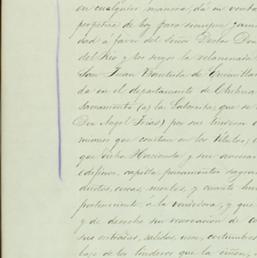 en cualquier manera, da en venta
perpetua de hoy para siempre jamas
dad á favor del Señor Doctor Don
del Rio y los suyos la relacionada
San Juan Bautista de
da en el departamento de
Sacramento (a) la Labor
Don Angel Frias) por sus linderos
mismos que constan en los títulos,
que dicha Hacienda y sus
edificios, capilla, paramentos
ductos, usos, montes, y cuanto
perteneciente á la vendedora, y que
y de derecho sin reservacion de
sus entradas, salidas, usos, costumbres
bajo de los linderos que la ciñen,